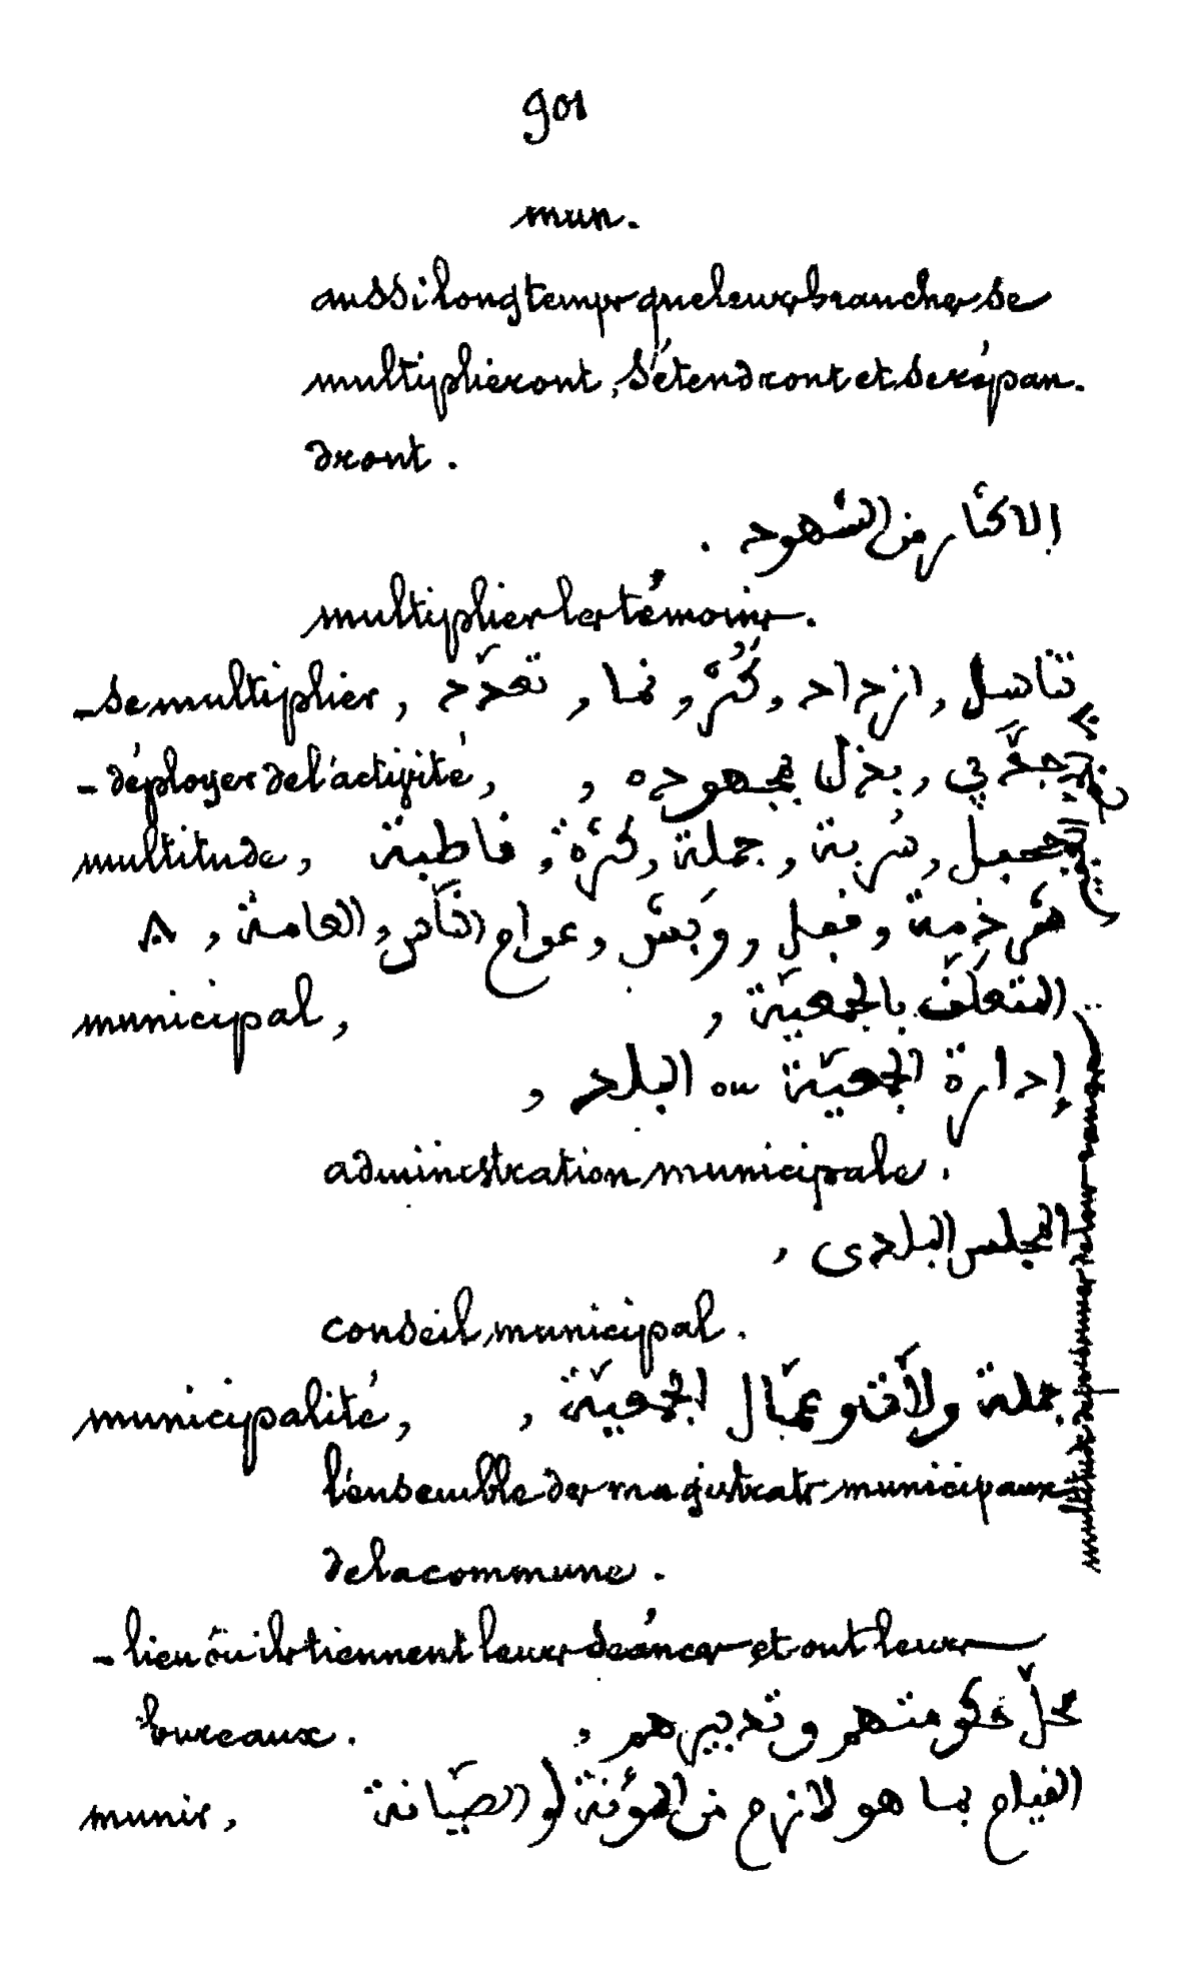 901
mun.
aussi longtemps que leurs branches se
multiplieront, s'étendront et se répan.
dront.
الاكثار من الشهود .
multiplier les témoins.
- se multiplier, تناسل , ازداد , كَثُرَ , نما , تعدّد
- déployer de l'activité, جدّ في , بذل مجهوده ,
multitude, جملة , كثرة , قاطبة
شرذمة , وبش , عوام الناس , العامة , 8
municipal, المتعلّق بالجمعيّة ,
إدارة الجمعيّة ou البلد ,
administration municipale.
المجلس البلدى ,
conseil municipal.
municipalité, جملة ولاة وعمّال الجمعيّة ,
l'ensemble des magistrats municipaux
de la commune.
- lieu où ils tiennent leurs séances et ont leurs
bureaux. محلّ حكومتهم وتدبيرهم ,
munir, القيام بما هو لازم من المؤنة او الصّيانة
multitude